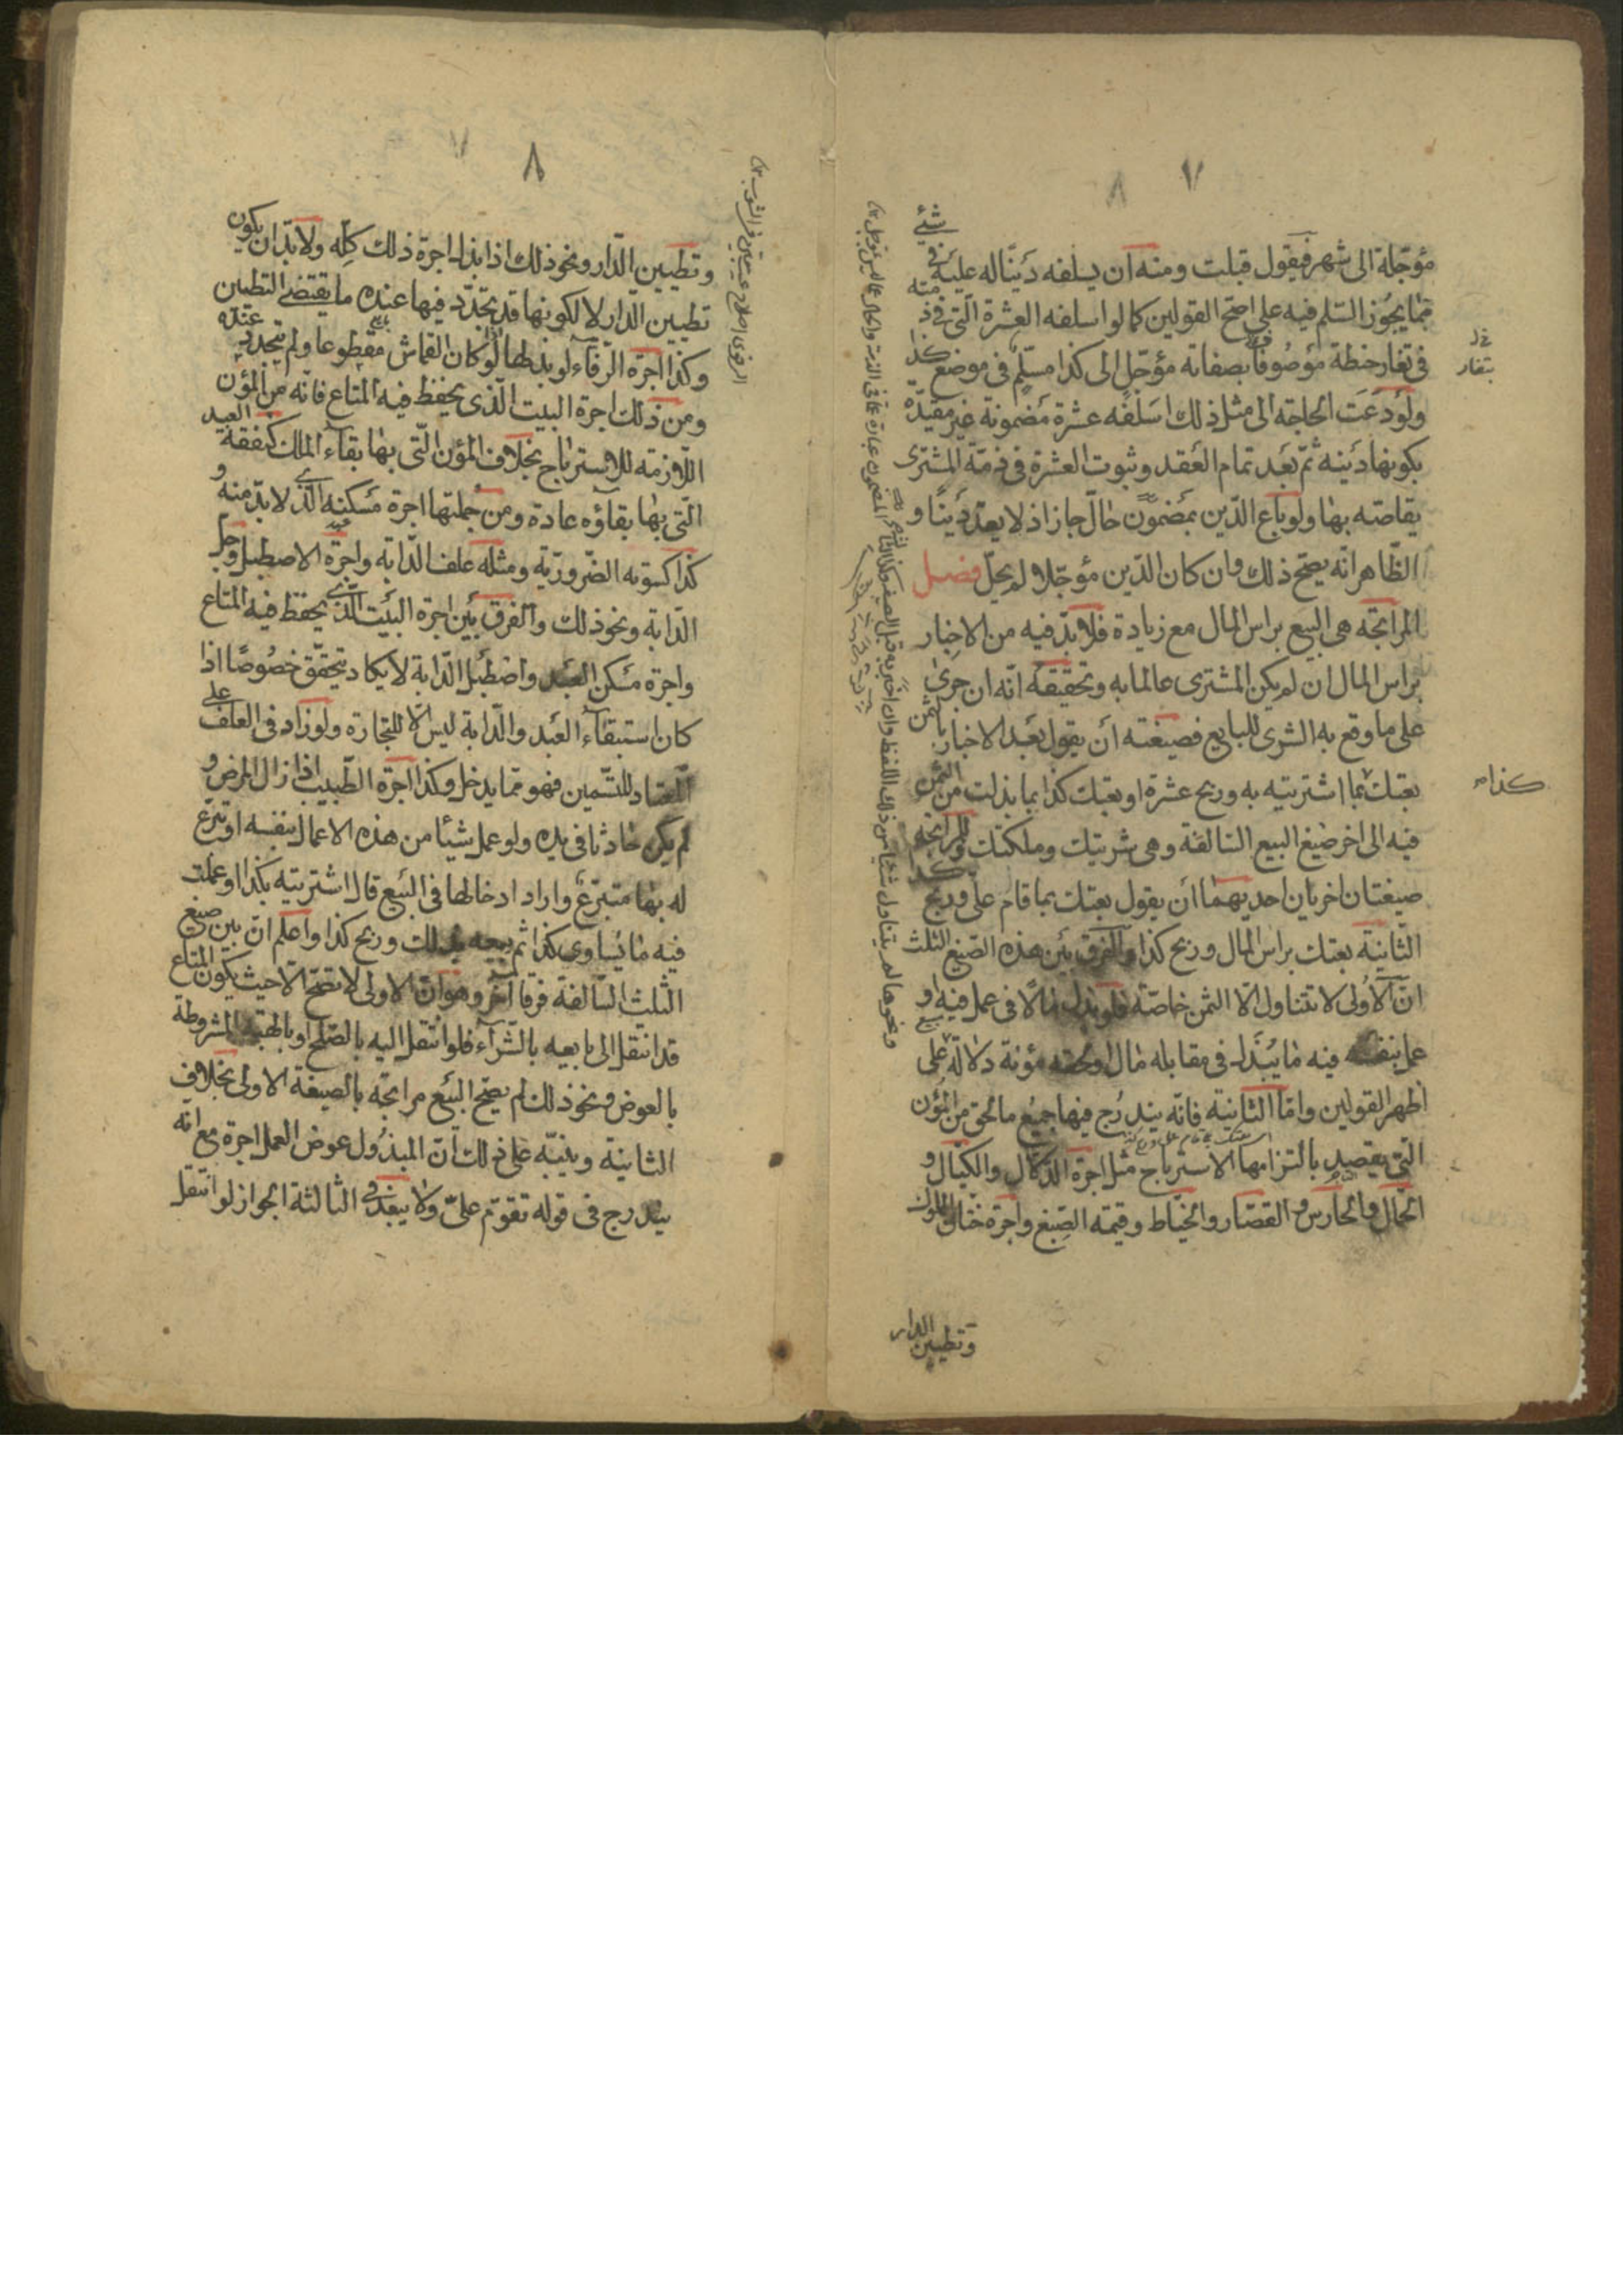 ٧
مؤجّلة الى شهر فيقول قبلت ومنه ان يسلفه دينًا له عليه في شئ
ممّا يجوز السّلم فيه على اصحّ القولين كما لو اسلفه العشرة الّتي في ذمته
في تغار حنطة موصوفا بصفاته مؤجّل الى كذا مسلّم في موضع كذا
ولو دعت الحاجة الى مثل ذلك اسلفه عشرة مضمونة غير مقيدة
بكونها دينه ثمّ بعد تمام العقد وثبوت العشرة في ذمّة المشترى
يقاصّه بها ولو باع الدّين بمضمون حالّ جاز اذ لا يعدّ دينًا و
الظّاهر انّه يصحّ ذلك وان كان الدّين مؤجّلا لم يحلّ فصل
المرابحة هى البيع براس المال مع زيادة فلا بدّ فيه من الاخبار
براس المال ان لم يكن المشترى عالما به وتحقيقه انّه ان جرى
على ما وقع به الشرى للبايع فصيغته أن يقول بعد الاخبار بالثمن
بعتك بما اشتريته به وربح عشرة او بعتك كذا بما بذلت من الثمن
فيه الى اخر صيغ البيع السّالفة وهى شريتك وملكتك وللمرابحة
صيغتان اخريان احديهما أن يقول بعتك بما قام علىّ وربح كذا
الثّانية بعتك براس المال وربح كذا والفرق بين هذه الصّيغ الثلث
انّ الأولى لا تتناول الّا الثمن خاصّة فلو بذل مالًا فى عمل فيه او
عمل بنفسه فيه ما يبذل فى مقابله مال او لحقه مؤنة دلالة على
اظهر القولين وامّا الثانية فانّه يندرج فيها جميع ما لحق من المؤن
الّتى يقصد بالتزامها الاسترباح مثل اجرة الدّلال والكيّال و
الحمّال والحارس والقصّار والخيّاط وقيمة الصّبغ واجرة ختان المملوك
وتطيين الدار
تغار
كذا
٨
وتطيين الدّار ونحو ذلك اذا بذل اجرة ذلك كلّه ولا بدّ ان يكون
تطيين الدّار لا لكونها قد تجدّد فيها عنده ما يقتضى التطيين
وكذا اجرة الرّفاء لو بذلها لو كان القماش مقطوعا ولم يتجدد عنده
ومن ذلك اجرة البيت الّذى يحفظ فيه المتاع فانّه من المؤن
اللّازمة للاسترباح بخلاف المؤن الّتى بها بقاء الملك كنفقة العبد
الّتى بها بقاؤه عادة ومن جملتها اجرة مسكنه الّذى لا بدّ منه و
كذا كسوته الضّروريّة ومثله علف الدّابة واجرة الاصطبل وجل
الدّابة ونحو ذلك والفرق بين اجرة البيت الّذى يحفظ فيه المتاع
واجرة مسكن العبد واصطبل الدّابة لا يكاد يتحقّق خصوصًا اذا
كان استبقاء العبد والدّابة ليس الّا للتجارة ولو زاد فى العلف على
المعتاد للتّسمين فهو ممّا يدخل وكذا اجرة الطّبيب اذا زال المرض و
لم يكن حادثا فى يده ولو عمل شيئا من هذه الاعمال بنفسه او تبرّع
له بها متبرّع واراد ادخالها فى البيع قال اشتريته بكذا او عملت
فيه ما يساوى كذا ثم بيعه بذلك وربح كذا واعلم انّ بين صيغ
الثّلث السّالفة فرقا آخر وهو انّ الاولى لا تصحّ الّا حيث يكون المتاع
قد انتقل الى بايعه بالشّراء فلو انتقل اليه بالصّلح او بالهبة المشروطة
بالعوض ونحو ذلك لم يصحّ البيع مرابحة بالصيغة الاولى بخلاف
الثانية وينبّه على ذلك انّ المبذول عوض العمل اجرة مع انّه
يندرج فى قوله تقوّم علىّ ولا يبعد فى الثالثة الجواز لو انتقل